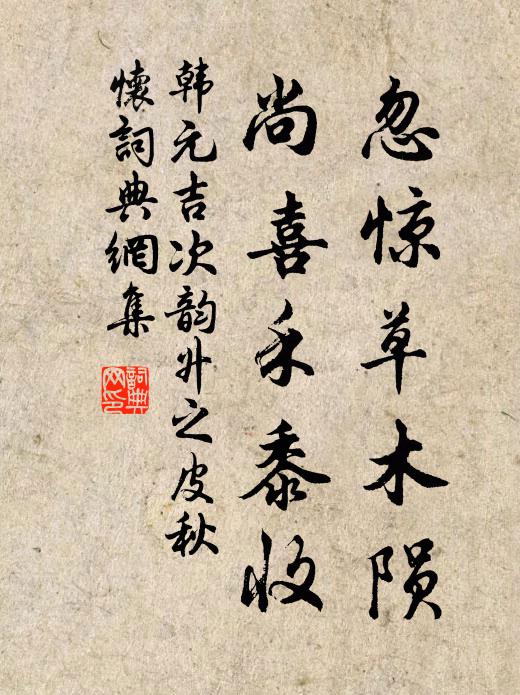 忽惊草木陨
尚喜禾黍收
韩元吉次韵升之皮秋
怀词典網集
詞典
网印